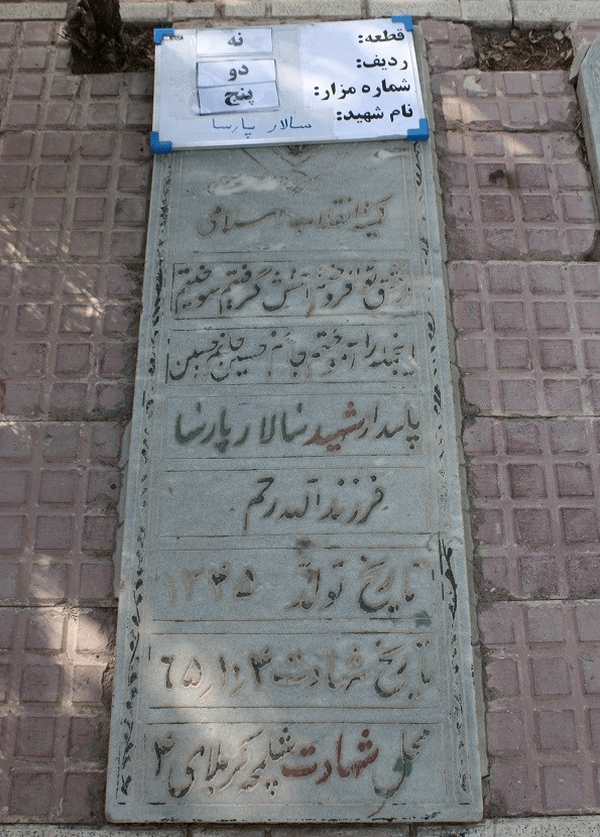 قطعه: نه
ردیف: دو
شماره مزار: پنج
نام شهید: سالار پارسا
کمیته انقلاب اسلامی
از عشق تو افروختم آتش گرفتم سوختم
اینجمله را آموختم جانم حسین جانم حسین
پاسدار شهید سالار پارسا
فرزند الله رحم
تاریخ تولد ۱۳۳۵
تاریخ شهادت ۶۵٫۱۰٫۴
محل شهادت شلمچه کربلای ۴